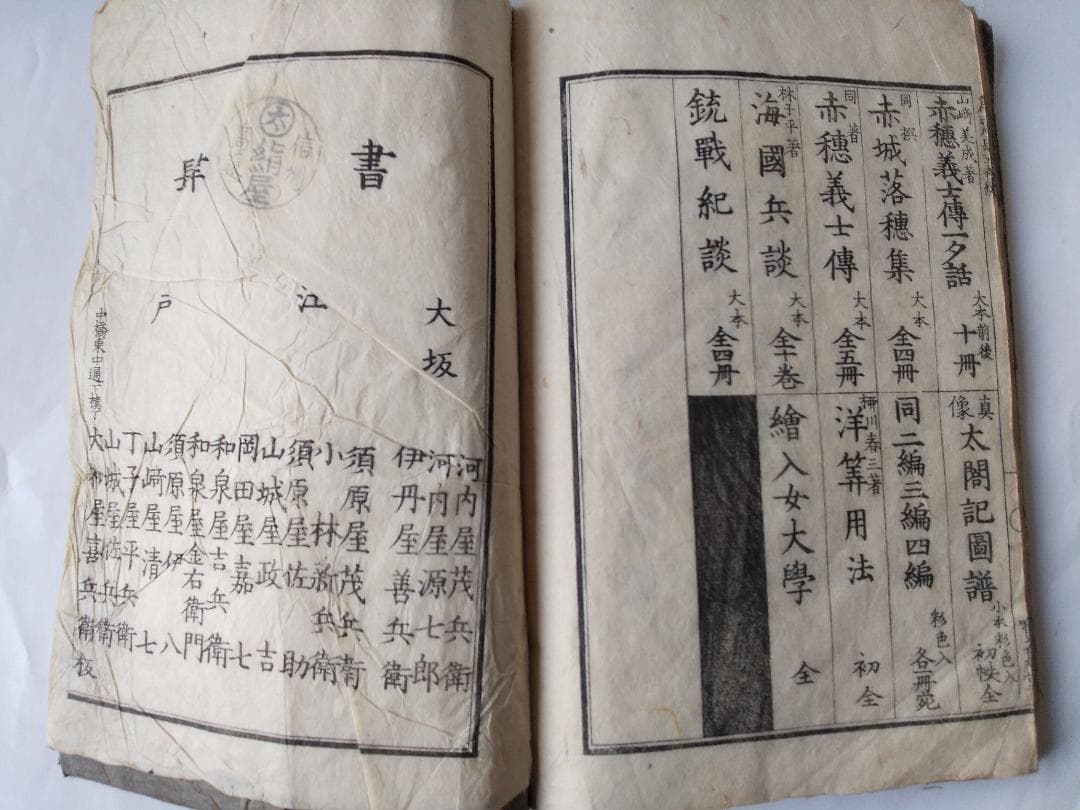 山﨑美成著
赤穂義士傳一夕話
大本前後
十冊
同撰
赤城落穗集
大本
全四冊
同著
赤穗義士傳
大本
全五冊
林子平著
海國兵談
大本
全十巻
銃戰紀談
大本
全四冊
真像
太閤記圖譜
小本彩色入
初帙全
同二編三編四編
彩色入
各一冊宛
柳川春三著
洋筭用法
初全
繪入女大學
全
書
大坂
河内屋茂兵衛
河内屋源七郎
伊丹屋善兵衛
江戸
須原屋茂兵衛
小林新兵衛
須原屋佐助
山城屋政吉
岡田屋嘉七
和泉屋吉兵衛
和泉屋金右衛門
須原屋伊八
山﨑屋清七
丁子屋平兵衛
山城屋佐兵衛
中橋東中通下槙丁
大和屋喜兵衛板
絹屋